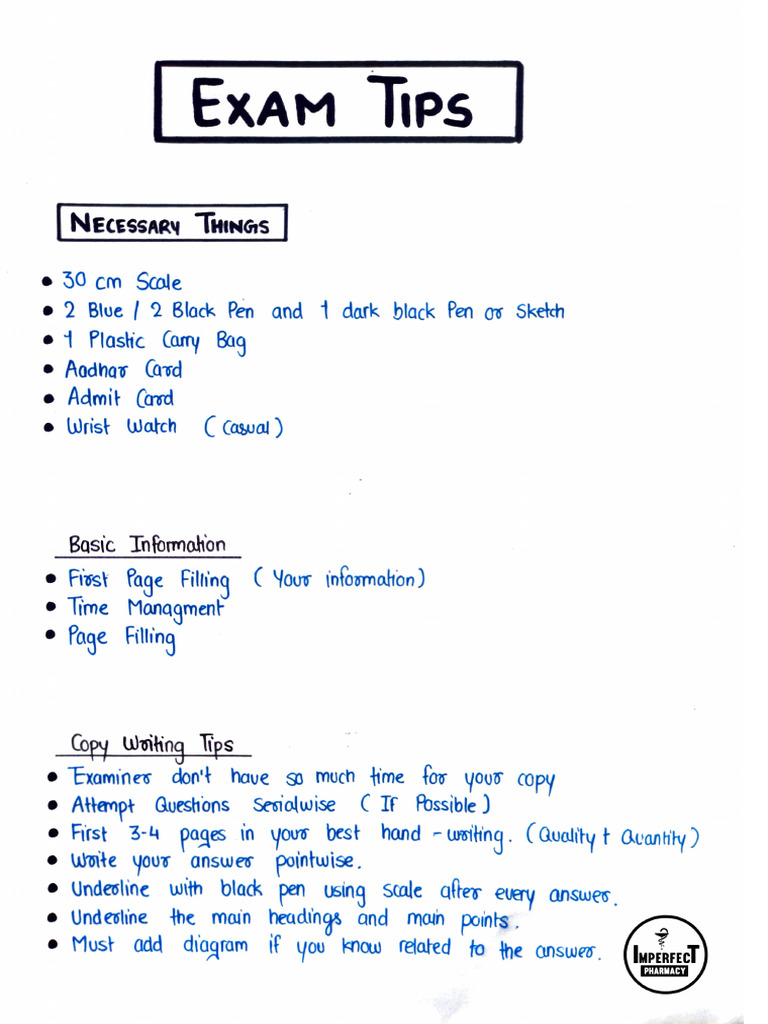 EXAM TIPS
NECESSARY THINGS
• 30 cm Scale
• 2 Blue / 2 Black Pen and 1 dark black Pen or Sketch
• 1 Plastic Carry Bag
• Aadhar Card
• Admit Card
• Wrist Watch (Casual)
Basic Information
• First Page Filling (Your information)
• Time Managment
• Page Filling
Copy Writing Tips
• Examiner don't have so much time for your copy
• Attempt Questions Serialwise (If Possible)
• First 3-4 pages in your best hand-writing. (Quality + Quantity)
• Write your answer pointwise.
• Underline with black pen using scale after every answer.
• Underline the main headings and main points.
• Must add diagram if you know related to the answer.
IMPERFECT
PHARMACY